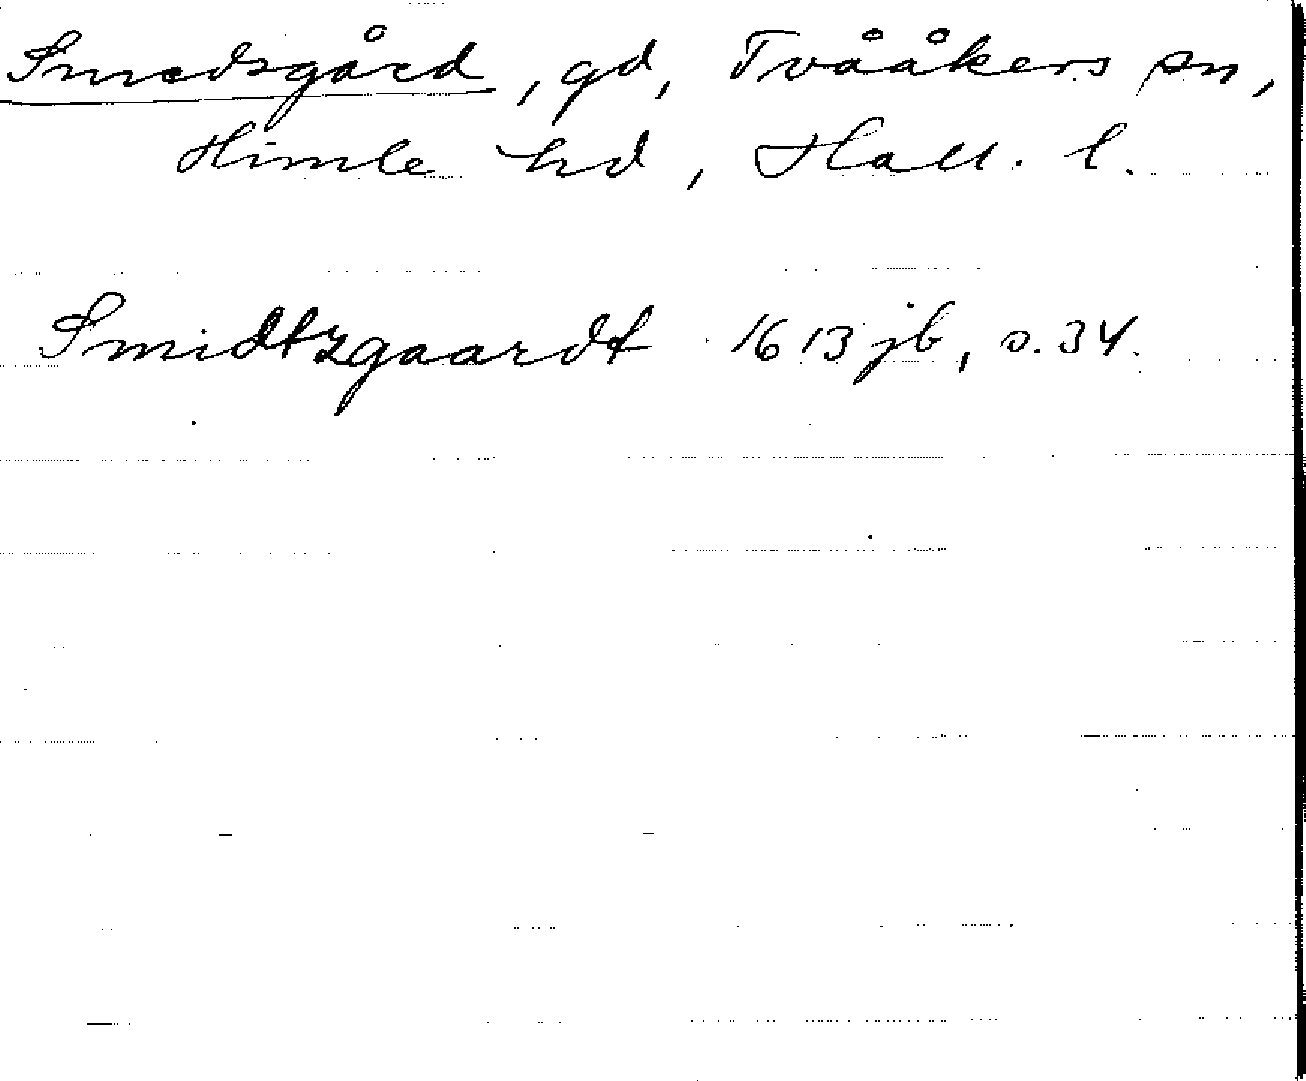 Smedsgård, gd, Tvååkers sn,
Himle hd, Hall. l.
Smidtzgaardt 1613 jb, s. 34.